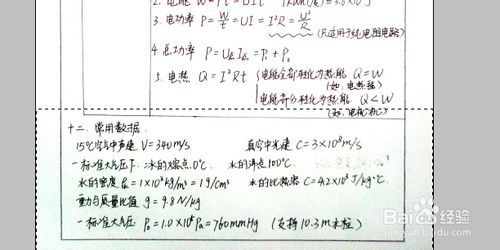 2. 电能 W=Pt=UIt
3. 电功率 P=W/t=UI=I²R=U²/R
(只适用于纯电阻电路)
4. 总功率 P=U总I总=P₁+P₂
5. 电热 Q=I²Rt 电能全部转化为热能 Q=W
(如:电热器)
电能部分转化为热能 Q<W
(如:电动机)
十二. 常用数据.
15℃空气中声速 V=340m/s 真空中光速 C=3×10⁸m/s
一标准大气压下:冰的熔点0℃. 水的沸点100℃.
水的密度 ρ水=1×10³kg/m³=1g/cm³ 水的比热容 C=4.2×10³J/kg·℃
重力与质量比值 g=9.8N/kg
一标准大气压 P₀=1.0×10⁵Pa=760mmHg (支持10.3m水柱)
Baidu 经验